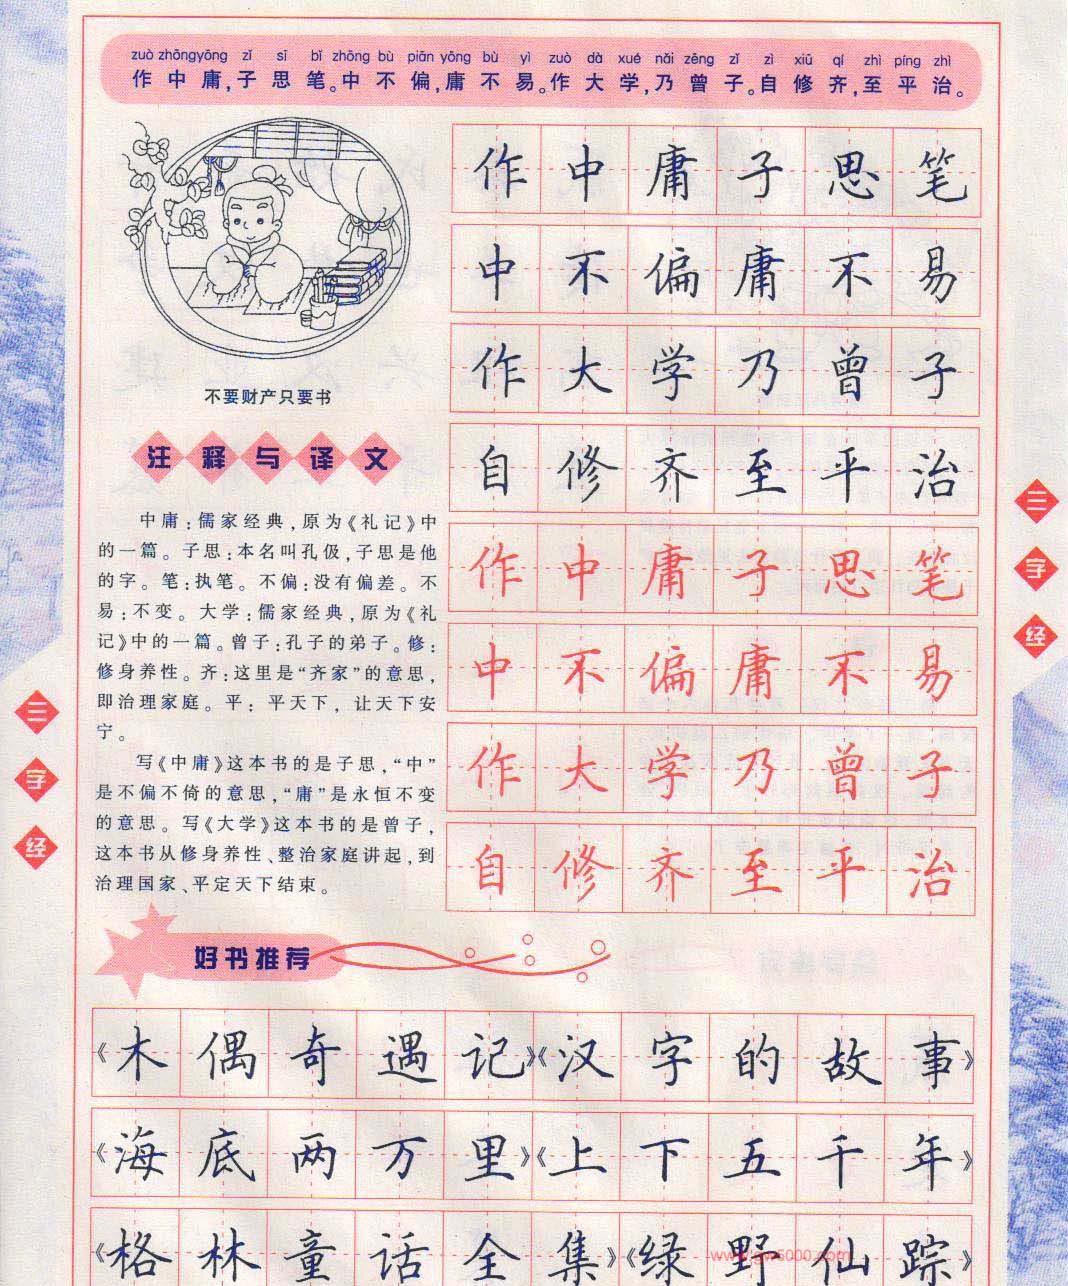 zuò zhōng yōng zǐ sī bǐ zhōng bù piān yōng bù yì zuò dà xué nǎi zēng zǐ zì xiū qí zhì píng zhì
作中庸,子思笔。中不偏,庸不易。作大学,乃曾子。自修齐,至平治。
不要财产只要书
注释与译文
中庸:儒家经典,原为《礼记》中
的一篇。子思:本名叫孔伋,子思是他
的字。笔:执笔。不偏:没有偏差。不
易:不变。大学:儒家经典,原为《礼
记》中的一篇。曾子:孔子的弟子。修:
修身养性。齐:这里是“齐家”的意思,
即治理家庭。平:平天下,让天下安
宁。
写《中庸》这本书的是子思,“中”
是不偏不倚的意思,“庸”是永恒不变
的意思。写《大学》这本书的是曾子,
这本书从修身养性、整治家庭讲起,到
治理国家、平定天下结束。
作中庸子思笔
中不偏庸不易
作大学乃曾子
自修齐至平治
作中庸子思笔
中不偏庸不易
作大学乃曾子
自修齐至平治
三字经
三字经
好书推荐
《木偶奇遇记》《汉字的故事》
《海底两万里》《上下五千年》
《格林童话全集》《绿野仙踪》